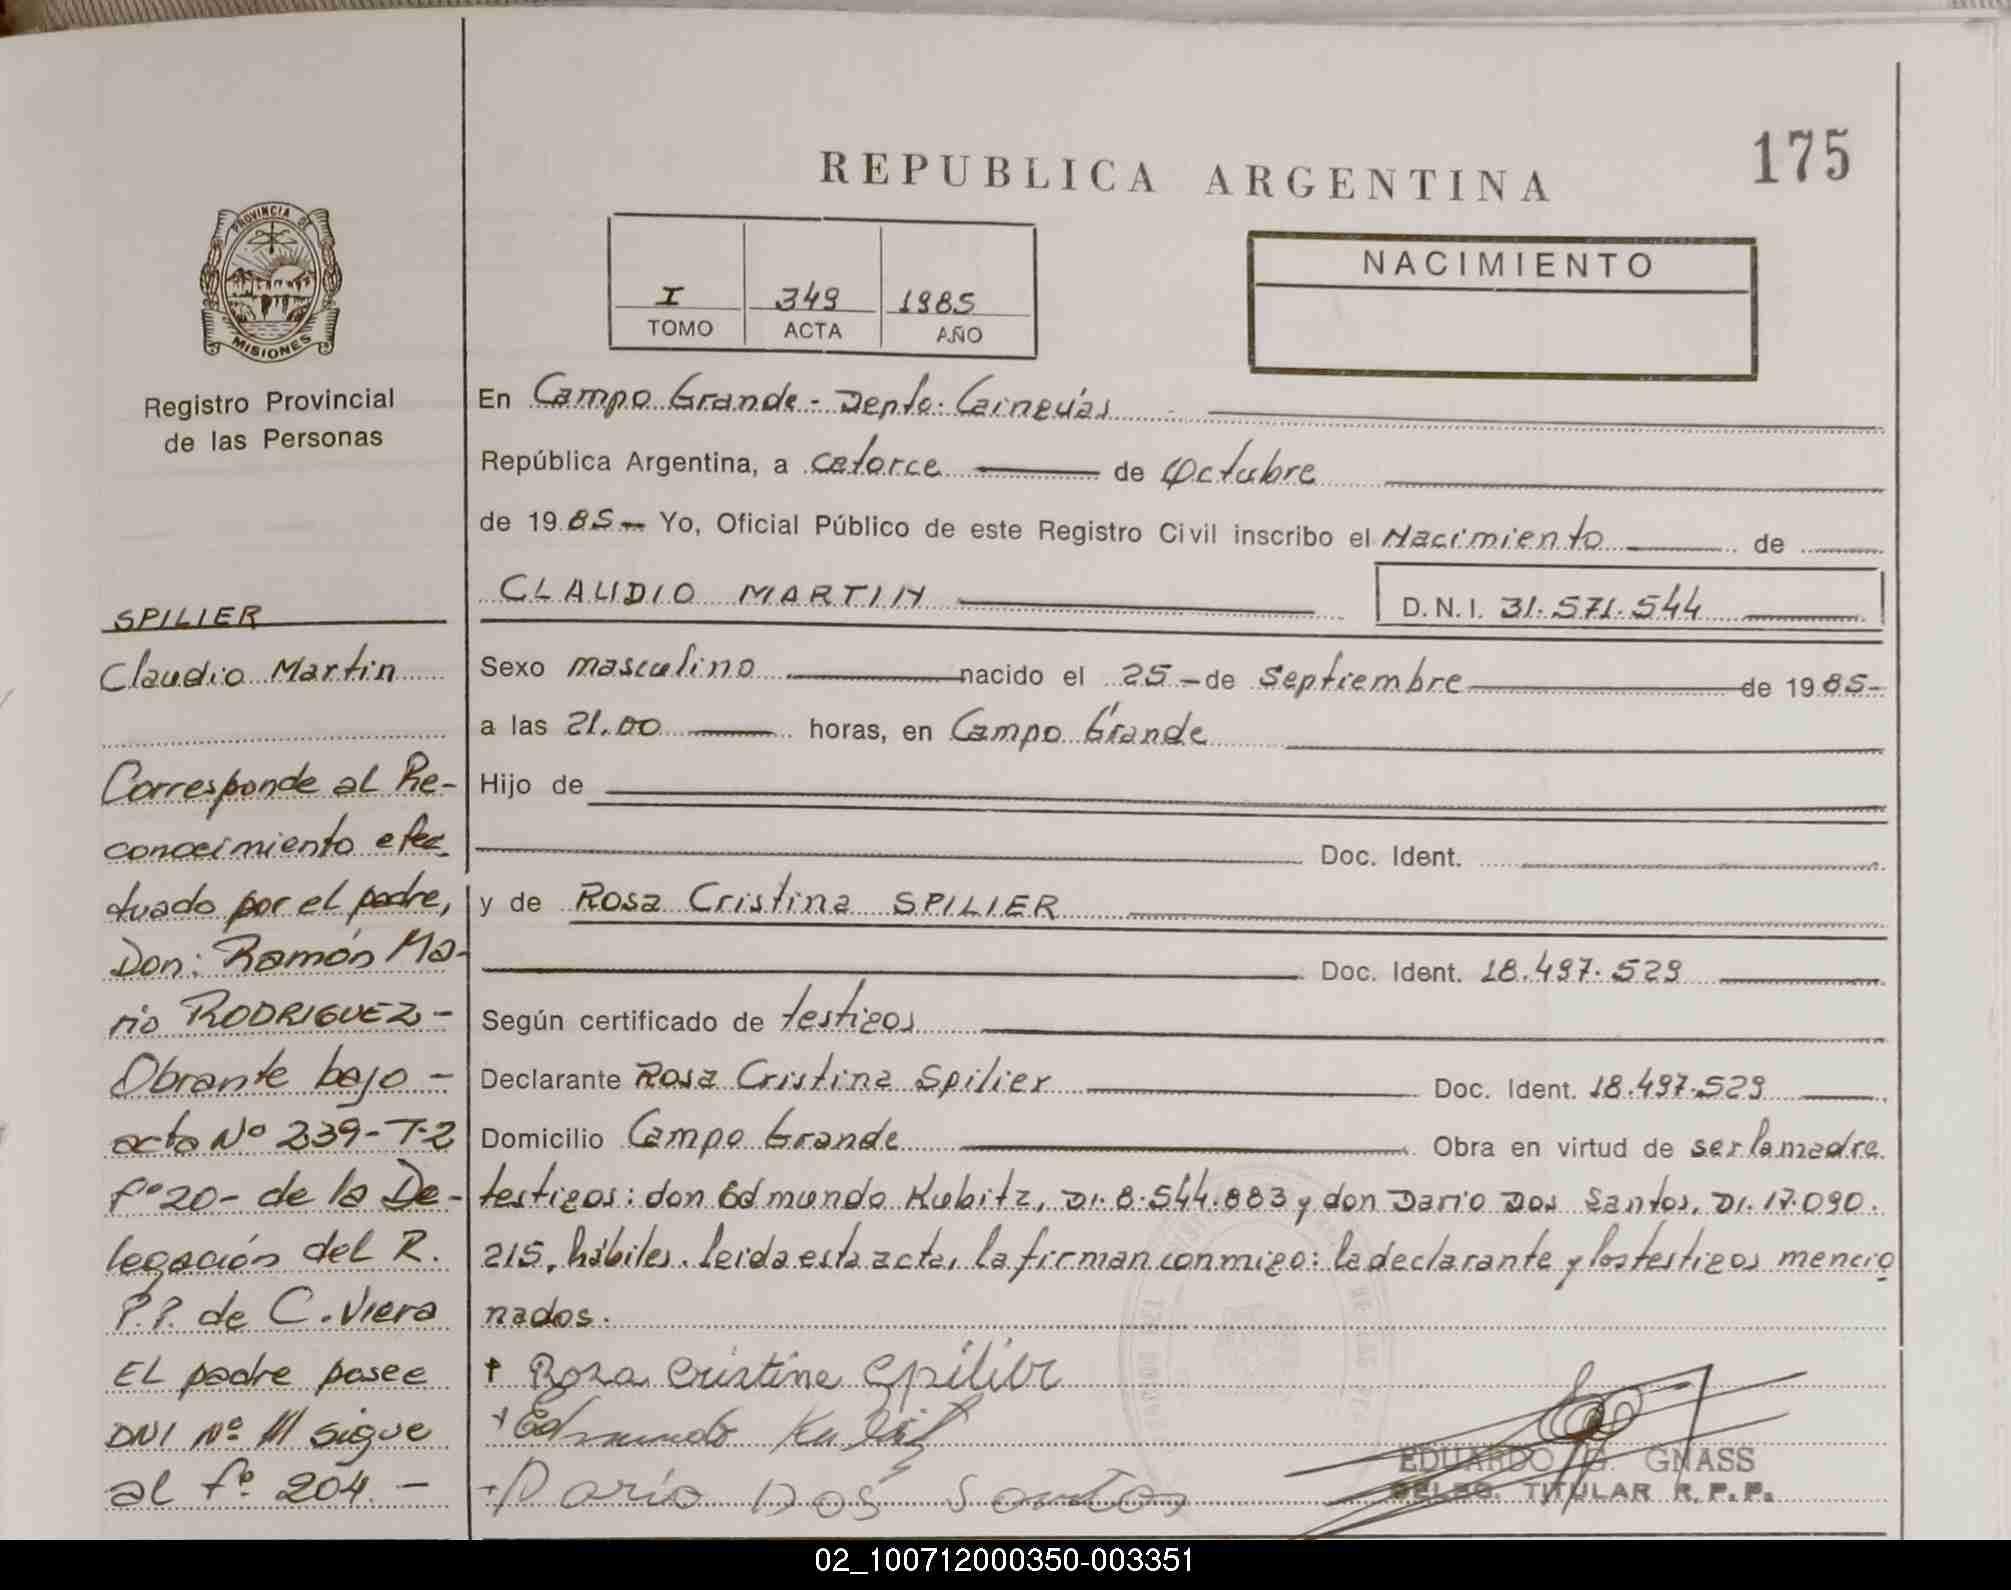 175
REPUBLICA ARGENTINA
PROVINCIA DE
MISIONES
Registro Provincial
de las Personas
I 349 1985
TOMO ACTA AÑO
NACIMIENTO
En Campo Grande - Depto. Cainguás
República Argentina, a catorce de Octubre
de 1985 Yo, Oficial Público de este Registro Civil inscribo el Nacimiento de
CLAUDIO MARTIN D.N.I. 31.571.544
Sexo masculino nacido el 25 de Septiembre de 1985
a las 21.00 horas, en Campo Grande
Hijo de
Doc. Ident.
y de Rosa Cristina SPILIER
Doc. Ident. 18.497.529
Según certificado de testigos
Declarante Rosa Cristina Spilier Doc. Ident. 18.497.529
Domicilio Campo Grande Obra en virtud de ser la madre.
testigos: don Edmundo Kubitz, DI. 8.544.883 y don Dario Dos Santos, DI. 17.090.
215, hábiles. leida esta acta, la firman conmigo: la declarante y los testigos mencio
nados.
Rosa Cristina Spilier
Edmundo Kubitz
Dario Dos Santos
EDUARDO G. GNASS
DELEG. TITULAR R. P. P.
SPILIER
Claudio Martin
Corresponde al Re-
conocimiento efec
tuado por el padre,
Don: Ramón Ma-
rio RODRIGUEZ -
Obrante bajo -
acta Nº 239-T-2
fº 20 - de la De-
legación del R.
P.P. de C. Viera
EL padre posee
DNI Nº /// sigue
al fº 204. -
02_100712000350-003351